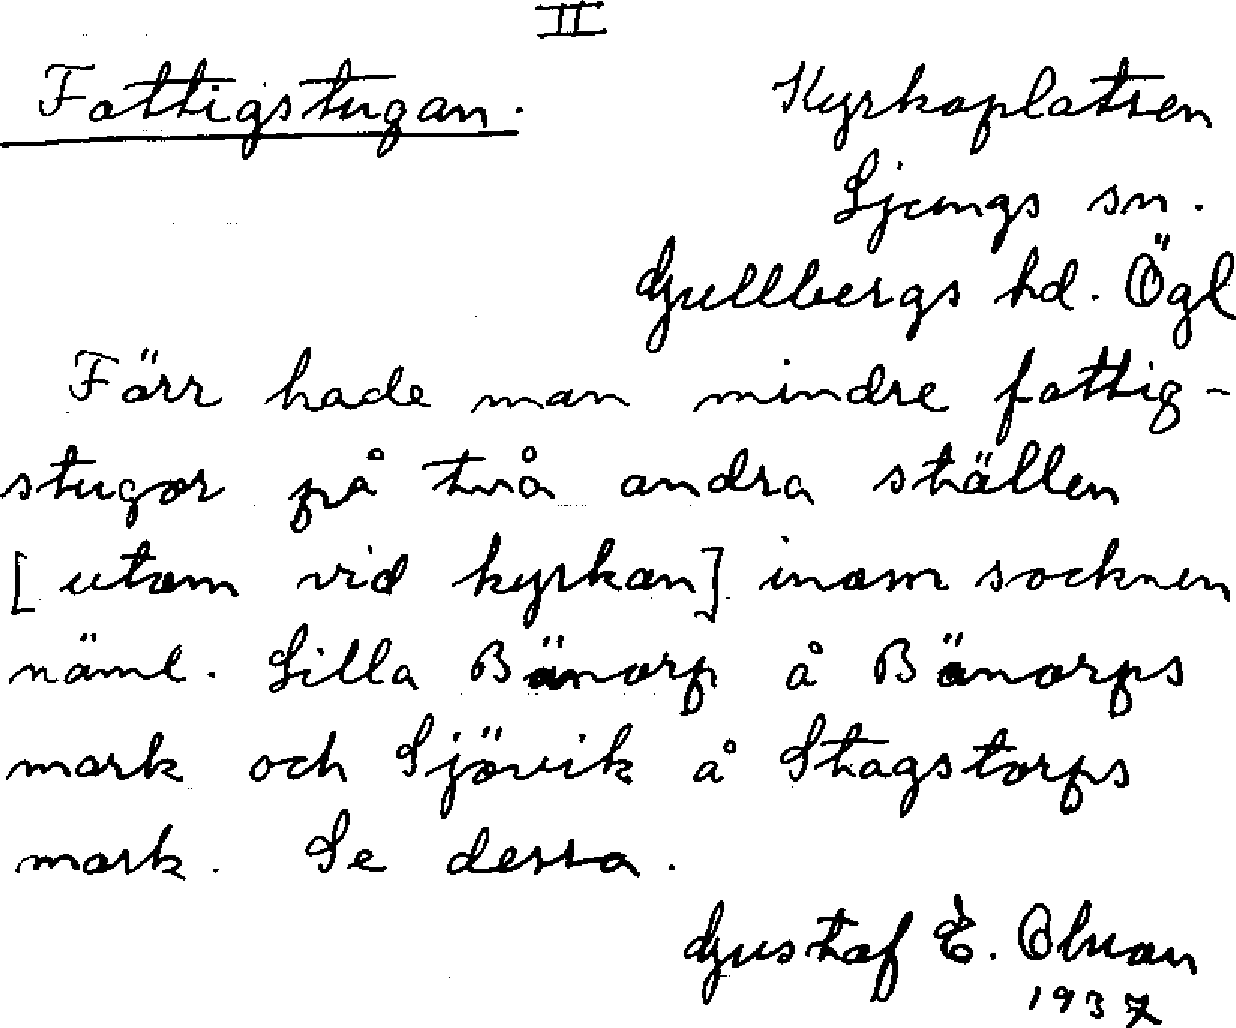 II
Fattigstugan.
Kyrkoplatsen
Ljungs sn.
Gullbergs hd. Ögl
Förr hade man mindre fattig-
stugor på två andra ställen
[utom vid kyrkan] inom socknen
näml. Lilla Bänorp å Bänorps
mark och Sjövik å Stagstorps
mark. Se dessa.
Gustaf E. Olsson
1937